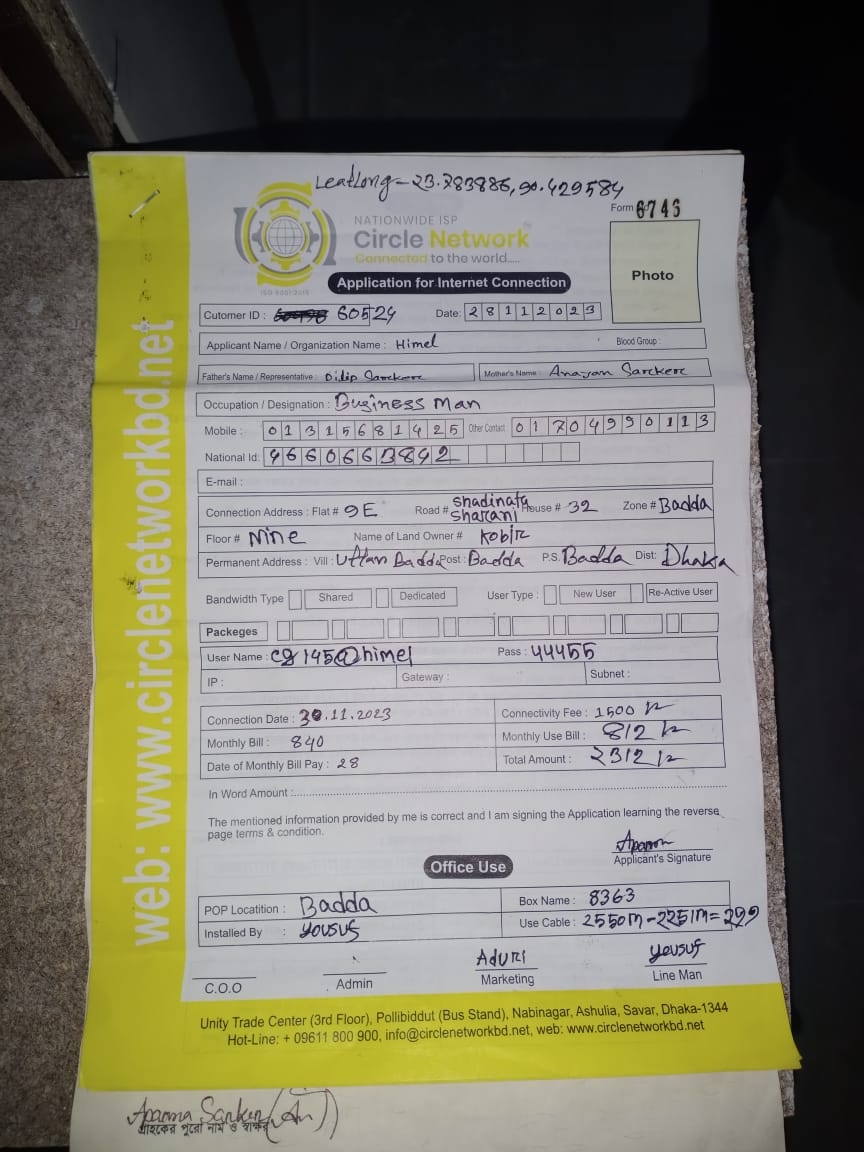 Leatlong-23.783886, 90.429584
Form 6746
NATIONWIDE ISP
Circle Network
Connected to the world.....
ISO 9001:2015
Photo
Application for Internet Connection
Cutomer ID : 60524 Date: 28112023
Applicant Name / Organization Name : Himel Blood Group :
Father's Name / Representative : Dilip Sarcker Mother's Name : Sarcker
Occupation / Designation : Business Man
Mobile : 01315681425 Other Contact 01704990113
National Id: 4660663842
E-mail :
Connection Address : Flat # 9E Road # shadinata sharani House # 32 Zone # Badda
Floor # Nine Name of Land Owner # Kobir
Permanent Address : Vill : Uttar Badda Post : Badda P.S. Badda Dist: Dhaka
Bandwidth Type Shared Dedicated User Type : New User Re-Active User
Packeges
User Name : cg145@himel Pass : 44455
IP : Gateway : Subnet :
Connection Date : 30.11.2023 Connectivity Fee : 1500
Monthly Bill : 840 Monthly Use Bill : 812
Date of Monthly Bill Pay : 28 Total Amount : 2312
In Word Amount :
The mentioned information provided by me is correct and I am signing the Application learning the reverse
page terms & condition.
Applicant's Signature
Office Use
POP Locatition : Badda Box Name : 8363
Installed By : yousuf Use Cable : 2550m-2251m=299
Aduri yousuf
C.O.O Admin Marketing Line Man
Unity Trade Center (3rd Floor), Pollibiddut (Bus Stand), Nabinagar, Ashulia, Savar, Dhaka-1344
Hot-Line: + 09611 800 900, info@circlenetworkbd.net, web: www.circlenetworkbd.net
web: www.circlenetworkbd.net
গ্রাহকের পুরো নাম ও স্বাক্ষর